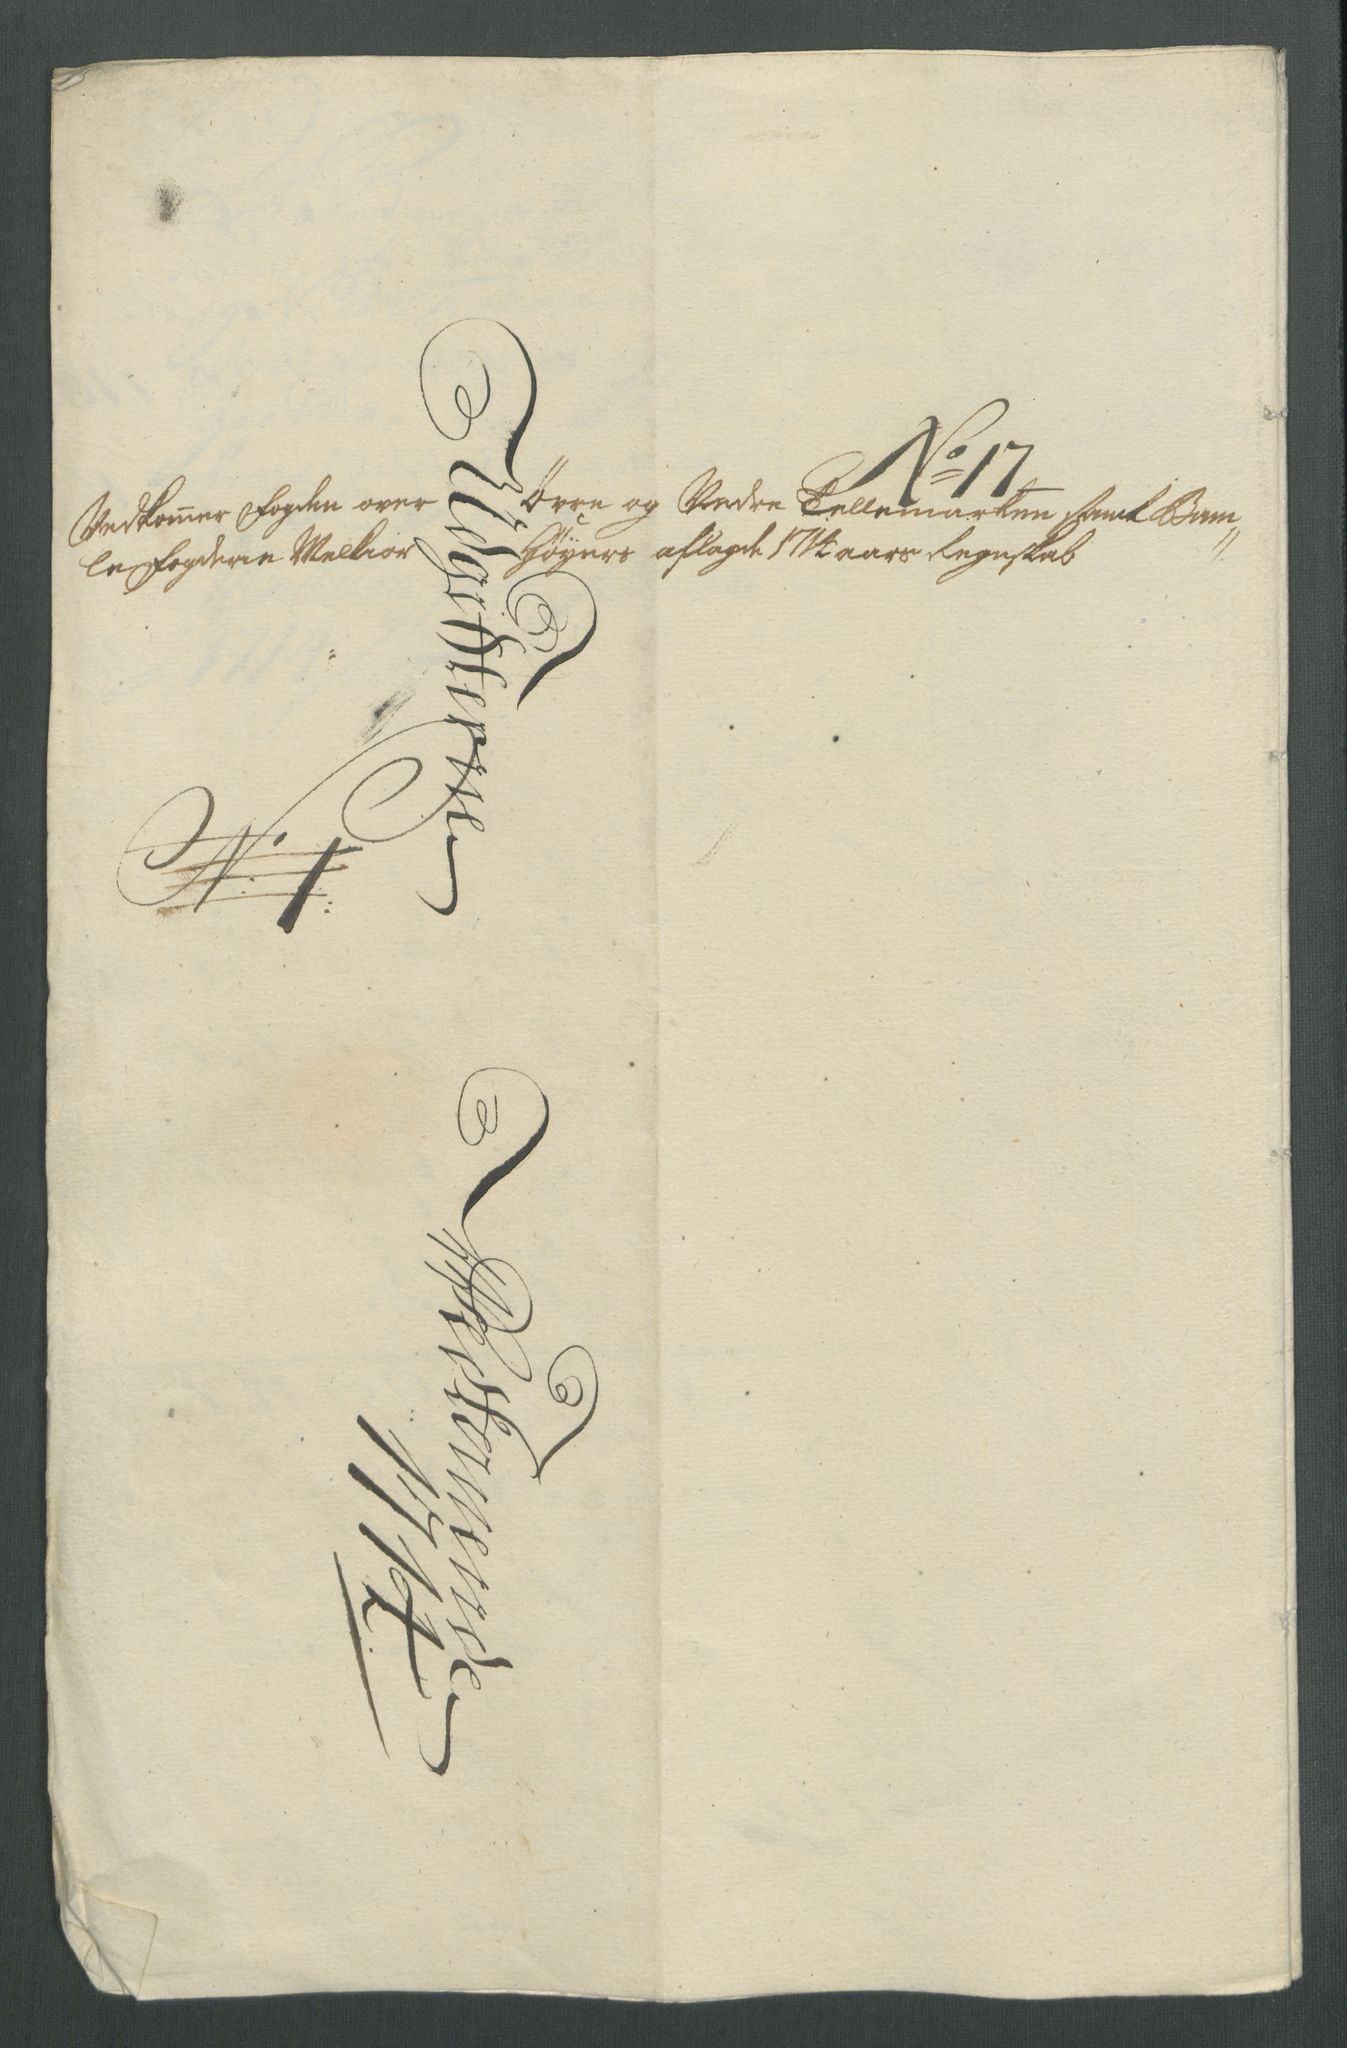 No 17
Vedkom̄er Fogden over Øvre og Nedre Tellemarken samt Bam„
le Fogderie Melchior Høyers aflagde 1714 aars Regnskab
Udgifterne
N: 1:
Vedkommende
1714